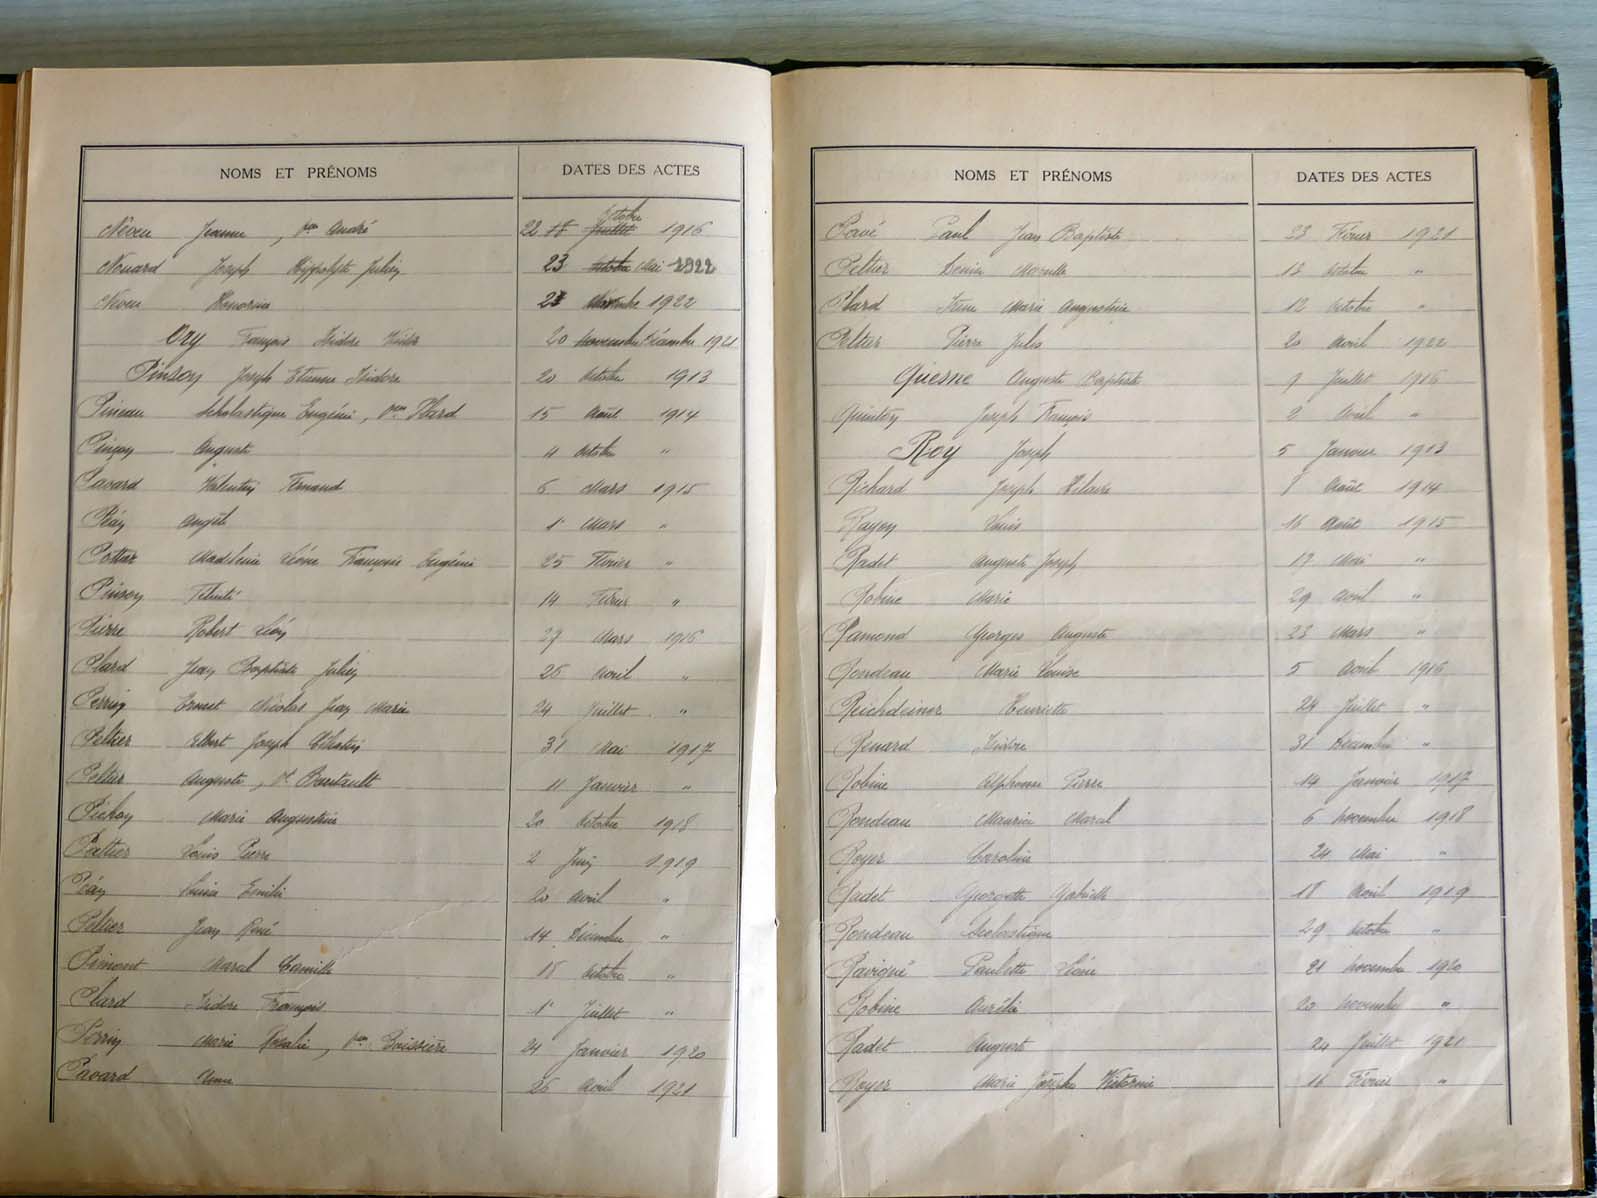 NOMS ET PRÉNOMS DATES DES ACTES
Neveu Jeanne, Vve André 22 18 Juillet Octobre 1916
Nouard Joseph Hippolyte Julien 23 octobre Mai 1922
Neveu Honorine 23 Novembre 1922
Ory François Isidore Victor 20 novembre Décembre 1921
Pinson Joseph Etienne Isidore 20 octobre 1913
Pineau Scholastique Eugénie, Vve Plard 15 Août 1914
Pinson Auguste 11 octobre "
Pavard Valentin Fernand 6 Mars 1915
Péan Angèle 1er Mars "
Pottier Madeleine Léone Françoise Eugénie 25 Février "
Pinson Félicité 14 Février "
Pierre Robert Léon 27 Mars 1916
Plard Jean Baptiste Julien 26 Avril "
Perrin Ernest Nicolas Jean Marie 24 Juillet "
Peltier Albert Joseph Célestin 31 Mai 1917
Peltier Auguste, Vf Boutault 11 Janvier "
Pichon Marie Augustine 20 octobre 1918
Peltier Louis Pierre 2 Juin 1919
Péan Louise Emilie 20 Avril "
Peltier Jean René 14 Décembre "
Primont Marcel Camille 18 octobre "
Plard Isidore François 1er Juillet "
Perrin Marie Rosalie, Vve Boissière 24 Janvier 1920
Pavard Anne 26 Avril 1921
NOMS ET PRÉNOMS DATES DES ACTES
Pavé Paul Jean Baptiste 23 Février 1921
Peltier Denise Marcelle 12 octobre "
Plard Irène Marie Augustine 12 octobre "
Peltier Pierre Jules 20 Avril 1922
Quesne Auguste Baptiste 9 Juillet 1916
Quinton Joseph François 2 Avril "
Roy Joseph 5 Janvier 1913
Richard Joseph Hilaire 1 Août 1914
Rayon Louis 16 Août 1915
Radet Auguste Joseph 17 Mai "
Robine Marie 29 Avril "
Ramond Georges Auguste 23 Mars "
Rondeau Marie Louise 5 Avril 1916
Reichdeiner Henriette 24 Juillet "
Renard Isidore 31 Décembre "
Robine Alphonse Pierre 14 Janvier 1917
Rondeau Maurice Marcel 6 novembre 1918
Royer Caroline 24 Mai "
Radet Georgette Gabrielle 18 Avril 1919
Rondeau Scolastique 29 octobre "
Ravigné Paulette Léone 21 novembre 1920
Robine Aurélie 20 novembre "
Radet Auguste 24 Juillet 1921
Royer Marie Josèphe Victorine 16 Février "